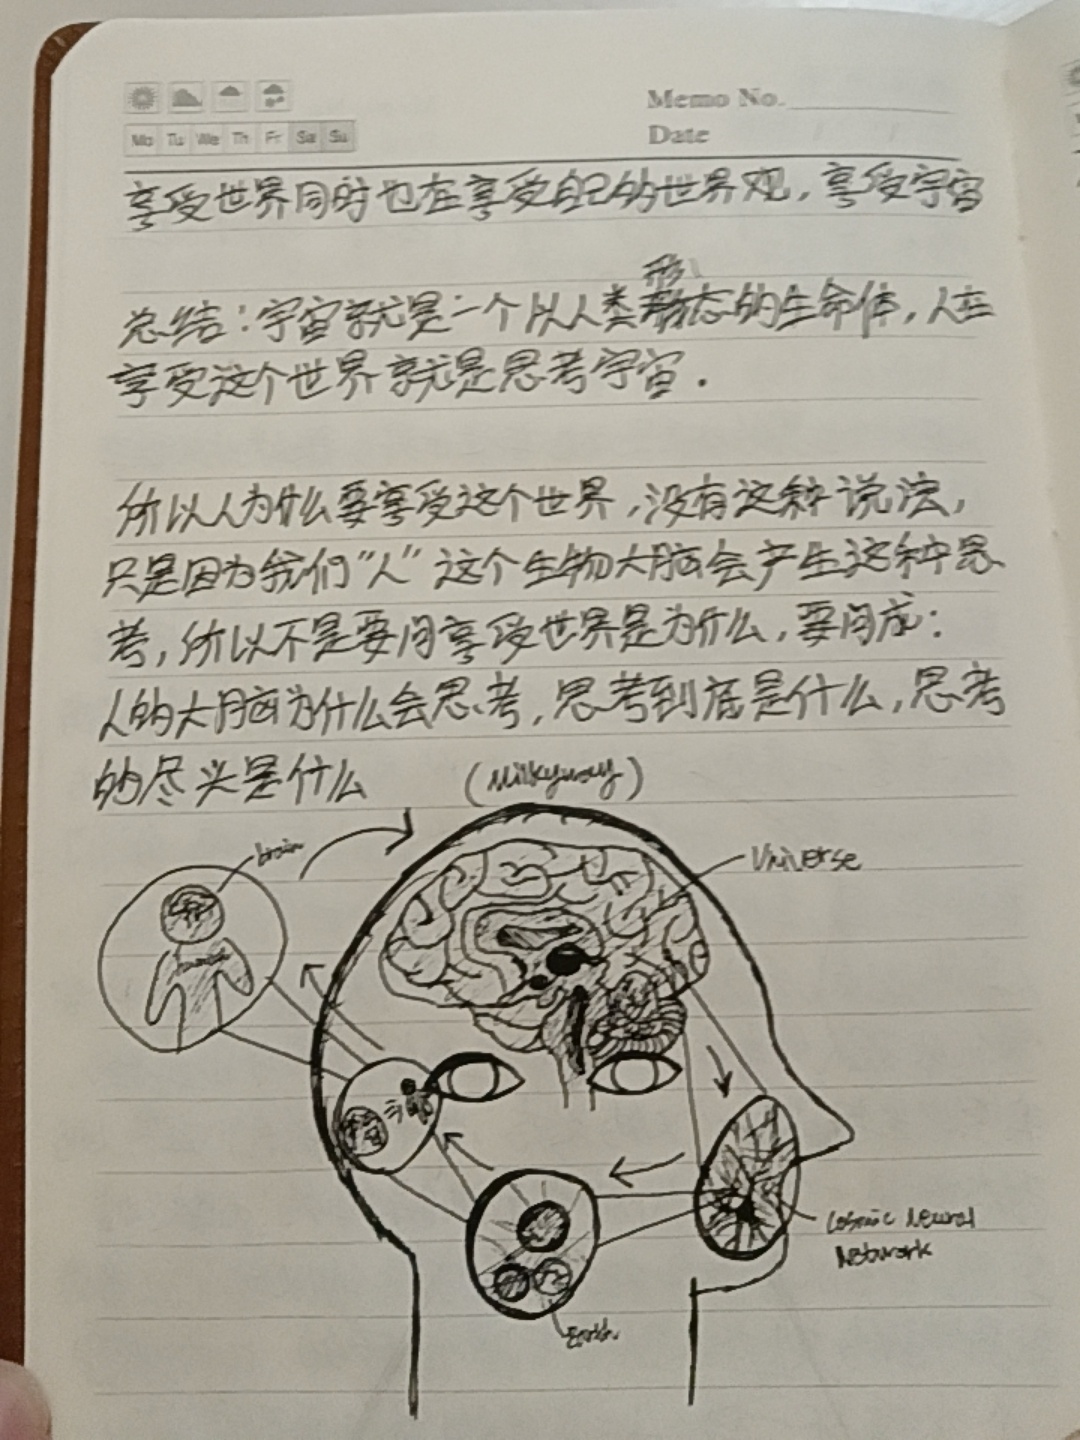 Memo No.
Mo Tu We Th Fr Sa Su
Date
享受世界同时也在享受自己的世界观，享受宇宙
形
总结：宇宙就是一个以人类态的生命体，人在
享受这个世界就是思考宇宙.
所以人为什么要享受这个世界，没有这种说法，
只是因为我们“人”这个生物大脑会产生这种思
考，所以不是要问享受世界是为什么，要问成：
人的大脑为什么会思考，思考到底是什么，思考
的尽头是什么
(Milkyway)
brain
Universe
Cosmic Neural
Network
Earth